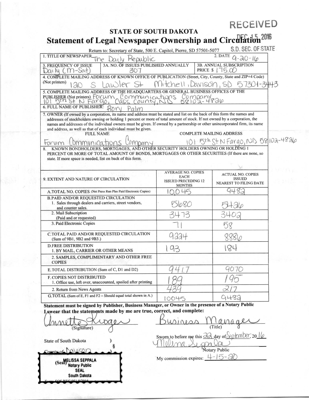 RECEIVED
STATE OF SOUTH DAKOTA
Statement of Legal Newspaper Ownership and Circulation
S.D. SEC. OF STATE
Return to: Secretary of State, 500 E. Capitol, Pierre, SD 57501-5077
1. TITLE OF NEWSPAPER The Daily Republic
2. DATE 9-20-16
3. FREQUENCY OF ISSUE Daily (M-Sat)
3A. NO. OF ISSUES PUBLISHED ANNUALLY 307
3B. ANNUAL SUBSCRIPTION PRICE $
4. COMPLETE MAILING ADDRESS OF KNOWN OFFICE OF PUBLICATION (Street, City, County, State and ZIP+4 Code)
(Not printers)
120 S Lawler St Mitchell Davison, SD 57301
5. COMPLETE MAILING ADDRESS OF THE HEADQUARTERS OR GENERAL BUSINESS OFFICES OF THE
PUBLISHER (Not printers) Forum Communications Company
101 5th St N Fargo, Cass County, ND 58102-4826
6. FULL NAME OF PUBLISHER: Rory Palm
7. OWNER (If owned by a corporation, its name and address must be stated and on the back of this form the names and
addresses of stockholders owning or holding 1 percent or more of total amount of stock. If not owned by a corporation, the
names and addresses of the individual owners must be given. If owned by a partnership or other unincorporated firm, its name
and address, as well as that of each individual must be given.
FULL NAME
COMPLETE MAILING ADDRESS
Forum Communications Company 101 5th St N Fargo, ND 58102-4826
8. KNOWN BONDHOLDERS, MORTGAGEES, AND OTHER SECURITY HOLDERS OWNING OR HOLDING 1
PERCENT OR MORE OF TOTAL AMOUNT OF BONDS, MORTGAGES OR OTHER SECURITIES (If there are none, so
state. If more space is needed, list on back of this form.
9. EXTENT AND NATURE OF CIRCULATION
AVERAGE NO. COPIES EACH ISSUED PRECEDING 12 MONTHS
ACTUAL NO. COPIES ISSUED NEAREST TO FILING DATE
A. TOTAL NO. COPIES (Net Press Run Plus Paid Electronic Copies) 10045 9482
B. PAID AND/OR REQUESTED CIRCULATION
1. Sales through dealers and carriers, street vendors, and counter sales. 5680
2. Mail Subscription (Paid and/or requested) 3473 3402
3. Paid Electronic Copies 71 58
C. TOTAL PAID AND/OR REQUESTED CIRCULATION (Sum of 9B1, 9B2 and 9B3.) 9224 8886
D. FREE DISTRIBUTION
1. BY MAIL, CARRIER OR OTHER MEANS 193 184
2. SAMPLES, COMPLIMENTARY AND OTHER FREE COPIES
E. TOTAL DISTRIBUTION (Sum of C, D1 and D2) 9417 9070
F. COPIES NOT DISTRIBUTED
1. Office use, left over, unaccounted, spoiled after printing 189 195
2. Return from News Agents 439 217
G. TOTAL (Sum of E, F1 and F2 - Should equal total shown in A.) 10045 9482
Statement must be signed by Publisher, Business Manager, or Owner in the presence of a Notary Public
I swear that the statements made by me are true, correct, and complete:
Annette Kroger Business Manager
(Signature) (Title)
State of South Dakota )
Sworn to before me this day of September, 2016
Melissa Seppala
Notary Public
MELISSA SEPPALA
Notary Public
SEAL
South Dakota
My commission expires: